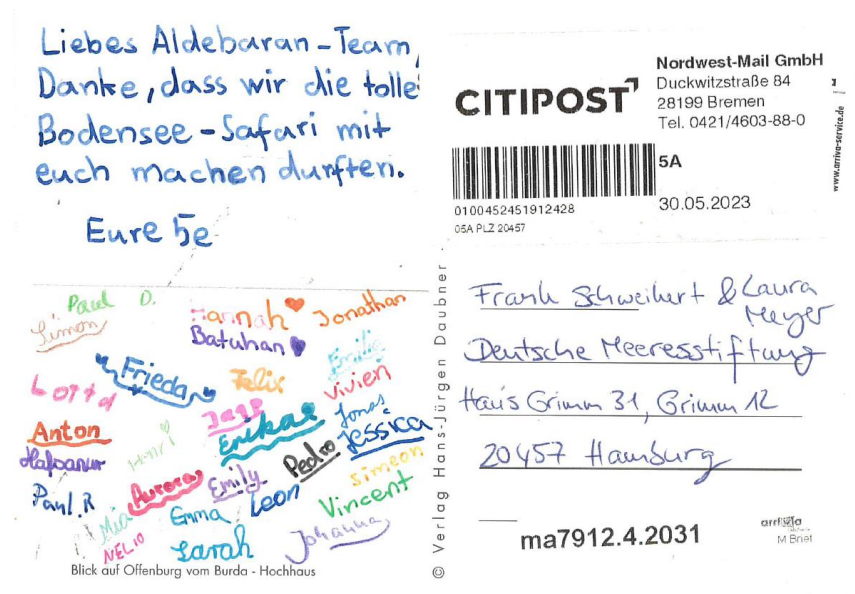 Liebes Aldebaran-Team,
Danke, dass wir die tolle
Bodensee-Safari mit
euch machen durften.
Eure 5e
Paul D.
Simon
Hannah
Jonathan
Batuhan
Emilia
Frieda
Felix
Vivien
Lotta
Jonas
Anton
Erika
Jessica
Henri
Pedro
Simeon
Aurora
Emily
Paul.R
Leon
Vincent
Mia
Emma
NELIO
Sarah
Johanna
Blick auf Offenburg vom Burda - Hochhaus
© Verlag Hans-Jürgen Daubner
CITIPOST
Nordwest-Mail GmbH
Duckwitzstraße 84
28199 Bremen
Tel. 0421/4603-88-0
5A
0100452451912428
30.05.2023
05A PLZ 20457
www.arriva-service.de
Frank Schweikert & Laura
Meyer
Deutsche Meeresstiftung
Haus Grimm 31, Grimm 12
20457 Hamburg
ma7912.4.2031
arriva
M Brief